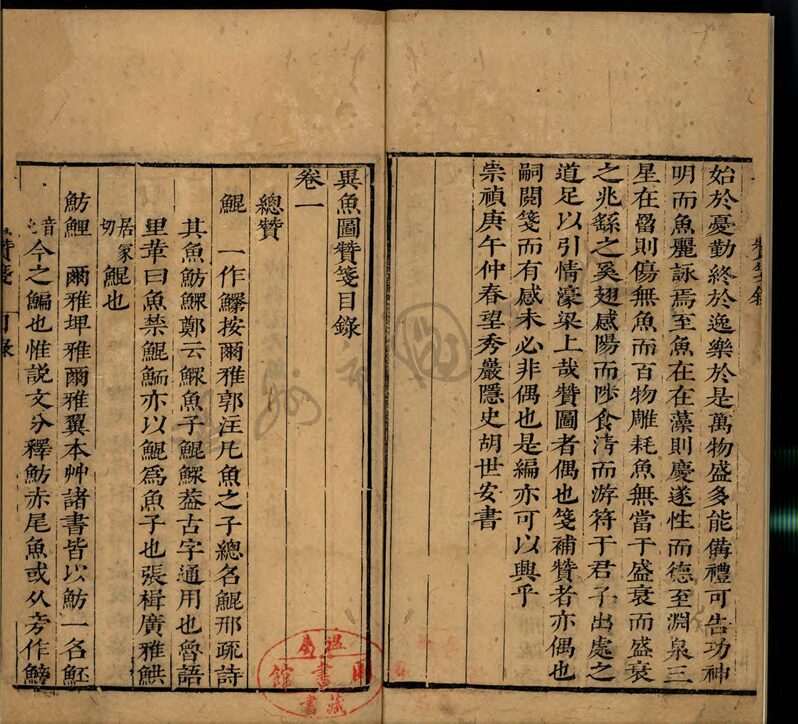 始於憂勤終於逸樂於是萬物盛多能備禮可告功神
明而魚麗詠焉至魚在在藻則慶遂性而德至淵泉三
星在罶則傷無魚而百物雕耗魚無當于盛衰而盛衰
之兆繇之奚翅感陽而陟食清而游符于君子出處之
道足以引情濠梁上哉贊圖者偶也箋補贊者亦偶也
嗣閱箋而有感未必非偶也是編亦可以興乎
崇禎庚午仲春望秀巖隱史胡世安書
異魚圖贊箋目錄
卷一
總贊
鯤 一作鰥按爾雅郭注凡魚之子總名鯤邢疏詩
其魚魴鰥鄭云鰥魚子鯤鰥葢古字通用也魯語
里革曰魚禁鯤鮞亦以鯤爲魚子也張楫廣雅䱋
居家切鯤也
魴鯉 爾雅埤雅爾雅翼本艸諸書皆以魴一名魾
音丕今之鯿也惟說文分釋魴赤尾魚或从旁作鰟
贊箋
目錄
圖書館藏書